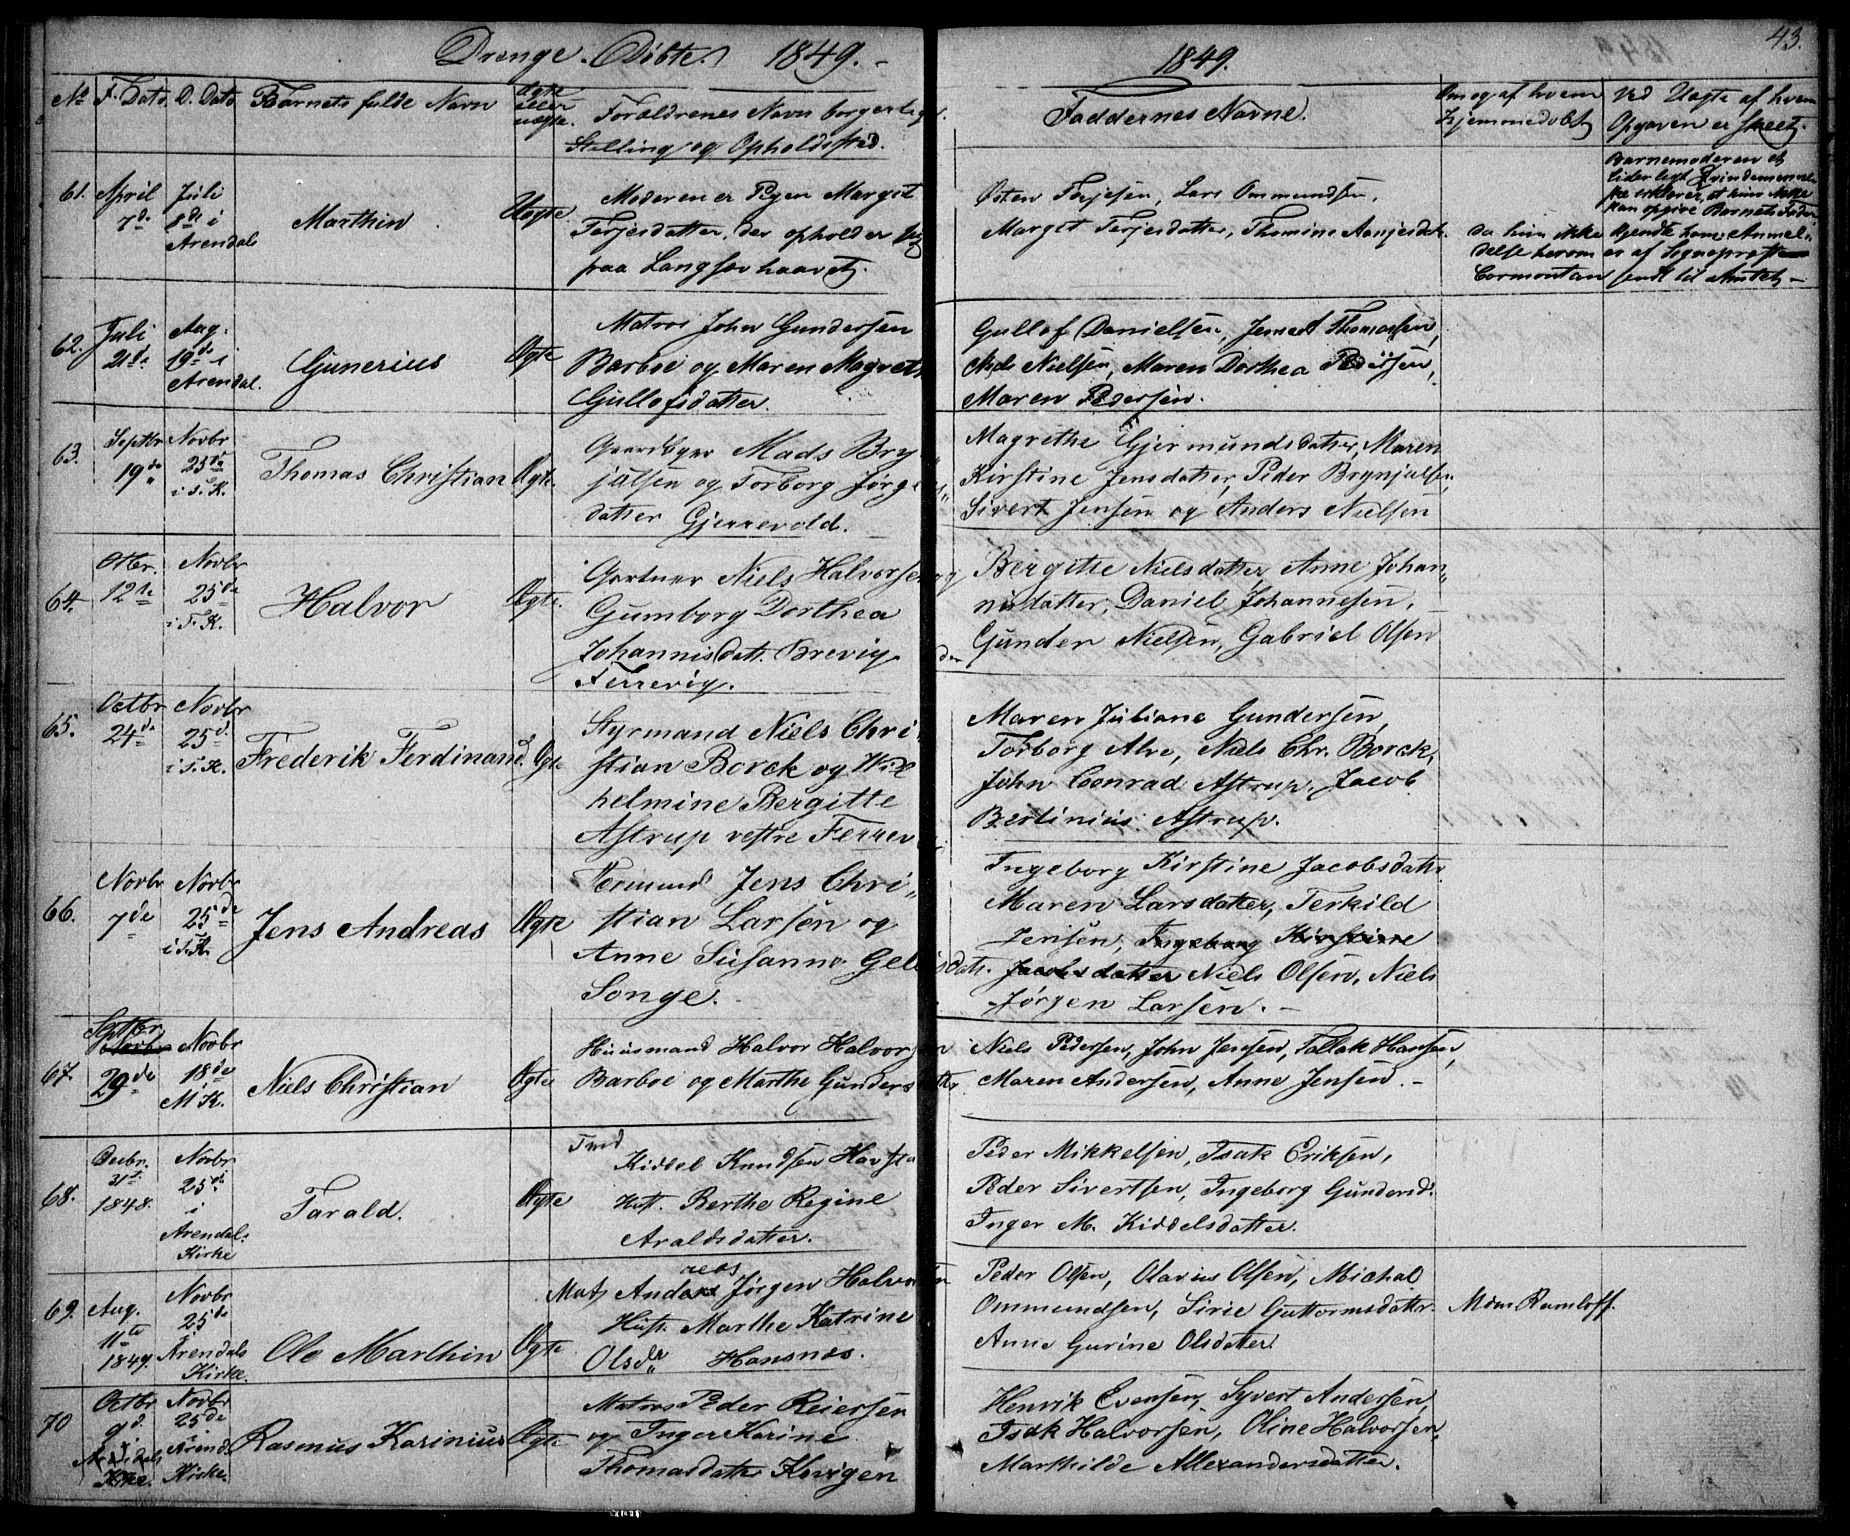 Drenge. Döbte. 1849. -
1849.
43.
No F. Dato D. Dato Barnets fulde Navn Ægte eller uægte. Forældrenes Navn borgerlige
Stilling og Opholdssted.
Faddernes Navne.
Om og af hvem hjemmedøbt
Ved Uægte af hvem Opgaven er skeet.
61. April 7de Juli 8de i Arendals Marthin Uægte Moderen er Pigen Marget
Terjesdatter, der opholder sig
paa Langsævhaavet.
Osten Terjesen, Lars Ommundsen,
Marget Terjesdatter, Thomine Aanjesdatr.
Barnemoderen et
liderligt Fvindemenneske
erklærer, at hun ikke
kan opgive Barnets Fader
da hun ikke kjendte ham. Anmel-
delse herom er af Sogneprest
Cormontan sendt til Amtet. -
62. Juli 21de Aug. 19de i Arendal. Gunerius Ægte Matros John Gundersen
Barboe og Maren Magret
Gullofsdatter.
Gullof Danielsen, Thomassen,
Niels Nielsen, Maren Dorthea Pedersen,
Maren Pedersen.
63. Septbr 19de Novbr 25de i T. K. Thomas Christian Ægte. Gaardbrger Mads Bry
julsen og Torborg Jørgens
datter Gjerrevold.
Magrethe Gjermundsdatter, Maren
Kirstine Jensdatter, Peder Brynjulsen,
Sivert Jensen og Anders Nielsen
64. Otbr. 12te Novbr 25de i T. K. Halvor Ægte. Gartner Niels Halvorsen og
Gumborg Dorthea
Johannisdatt. Brevig
Terrevig.
Bergitte Nielsdatter, Anne Johan-
nisdatter, Daniel Johannesen,
Gunder Nielsen, Gabriel Olsen
65. Octbr 24de Novbr 25de i T. K. Frederik Ferdinand. Ægte Styrmand Niels Chri
stian Borck og Wil
helmine Bergitte
Astrup vestre Ferrev
Maren Juliane Gundersen,
Torborg Alve, Niels Chr. Borck,
John Conrad Astrup, Jacob
Bertinius Astrup.
66. Novbr 7de Novbr 25de i T. K. Jens Andreas Ægte Fermand Jens Chri-
stian Larsen og
Anne Susanne Gellisdatt.
Songe.
Ingeborg Kirstine Jacobsdatr
Maren Larsdatter, Terkild
Jensen, Ingeborg Kirstine
Jacobsdatter Niels Olsen, Niels
Jørgen Larsen. -
67. Septbr Novbr 29de Novbr 18de M K. Niels Christian Ægte Huusmand Halvor Halvorsen
Barboe og Marthe Gundersdatter
Niels Pedersen, John Jensen, Tallak Hansen,
Maren Andersen, Anne Jensen. -
68. Decbr. 31te 1848. Novbr 25de i Arendals Kirke Tarald. Ægte Kiddel Knudsen Havsta
Hust. Berthe Regine
Araldsdatter.
Peder Mikkelsen, Isak Eriksen,
Peder Sivertsen, Ingeborg Gundersd.
Inger M. Kiddelsdatter.
69. Aug. 11te 1849. Novbr 25de Arendals Kirke. Ole Marthin Ægte Mat. Andreas Jørgen Halvorsen
Hust. Marthe Katrine
Olsdr Hansnæs.
Peder Olsen, Olavius Olsen, Michal
Ommundsen, Sirie Guttormsdatter.
Anne Gurine Olsdatter.
Mdm Ramloff.
70 Octbr 9d. Arendals Kirke. Novbr 25de i Arend. Kirke. Rasmus Karinius Ægte Matros Peder Reiersen
og Inger Karine
Thomasdatter Kongen
Henrik Evensen, Syvert Andersen,
Isak Halvorsen, Oline Halvorsen,
Marthilde Allexandersdatter.